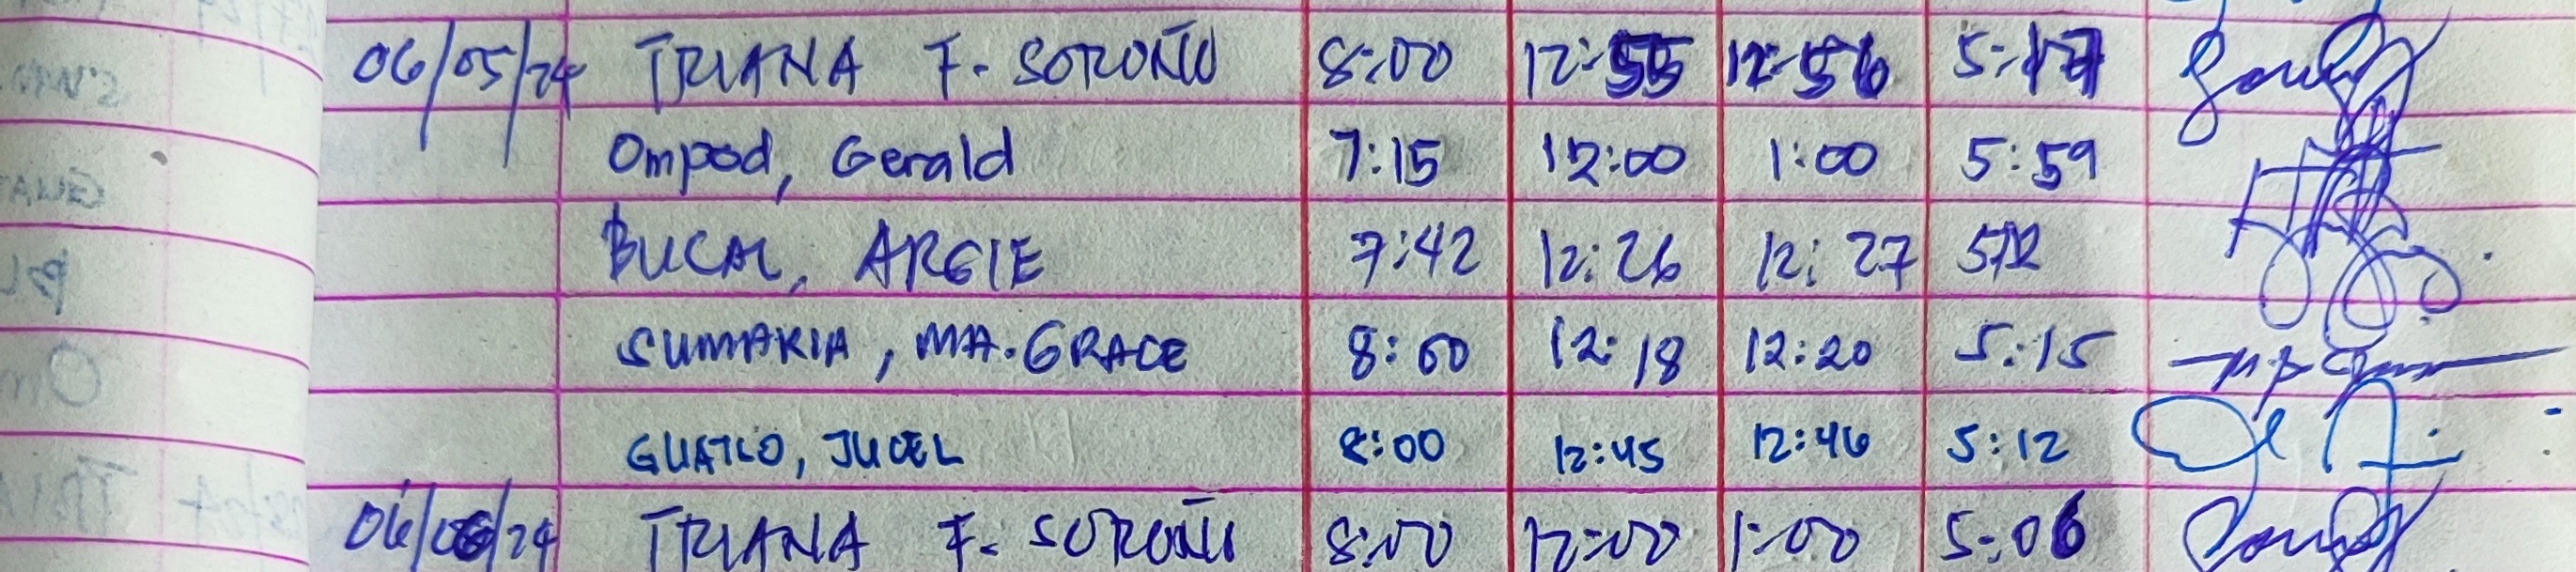 06/05/24 TRIANA F. SOROÑO 8:00 12:55 12:56 5:17
Ompod, Gerald 7:15 12:00 1:00 5:59
BUCAL, ARGIE 7:42 12:26 12:27 5:12
SUMARIA, MA. GRACE 8:00 12:18 12:20 5:15
GUATLO, JUCEL 8:00 12:45 12:46 5:12
06/06/24 TRIANA F. SOROÑO 8:00 12:00 1:00 5:06